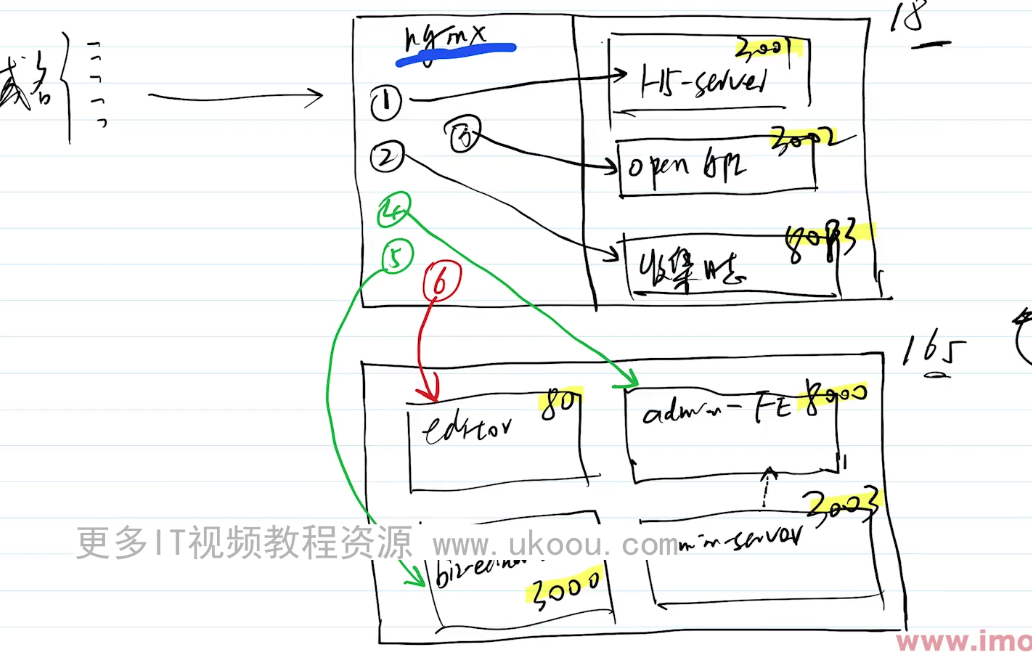 域名
nginx
18
①
②
③
④
⑤
⑥
3001
H5-server
3002
open API
8083
收集日志
165
editor 80
admin-FE 8000
3003
min-server
3000
更多IT视频教程资源 www.ukoou.com
www.imo